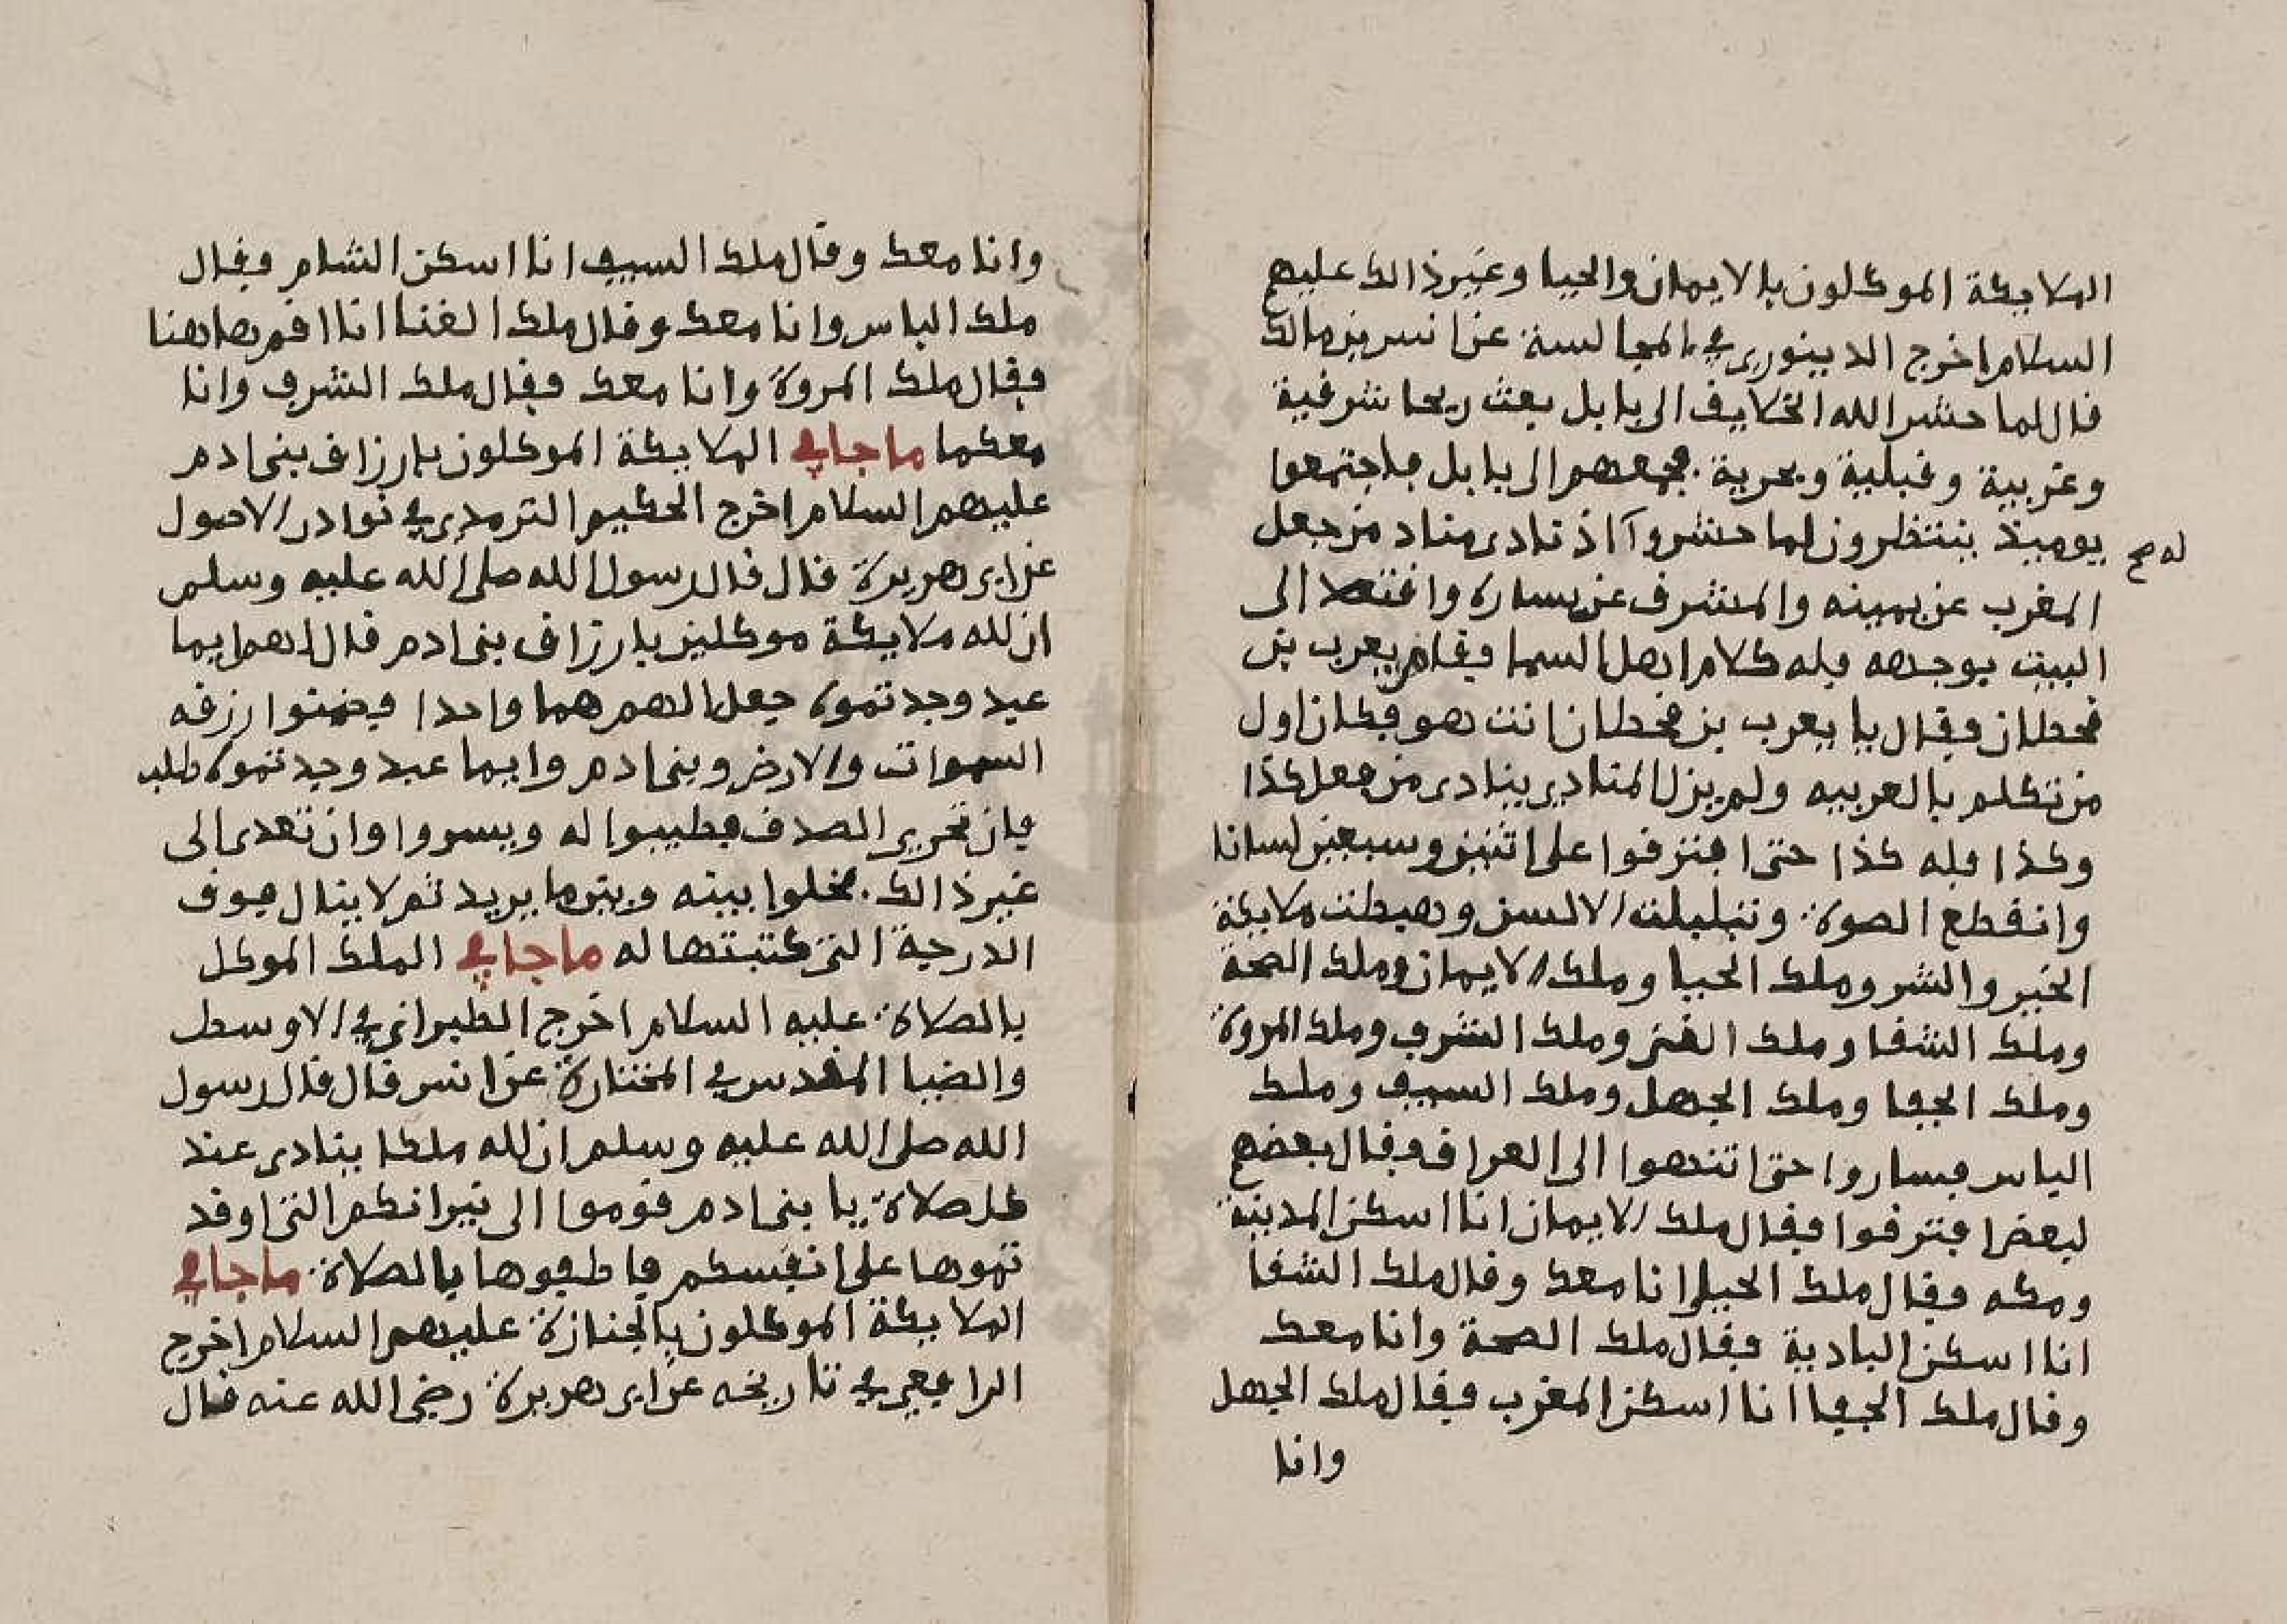 الملايكة الموكلون بالايمان والحيا وغير ذالك عليهم
السلام اخرج الدينوري في المجالسة عن انس بن مالك
قال لما حشر الله الخلايف الى بابل بعث ريحا شرقية
وغربية وقبلية وبحرية فجمعهم الى بابل فاجتمعوا
يوميذ ينتظرون لما حشروا اذ نادى مناد من جعل
له صح
المغرب عن يمينه والمشرق عن يساره واقتصد الى
البيت بوجهه فله كلام اهل السما فقام يعرب بن
قحطان فقال يا يعرب بن قحطان انت هو فكان اول
من تكلم بالعربيه ولم يزل المنادي ينادى من فعل كذا
وكذا فله كذا حتى افترقوا على اثنين وسبعين لسانا
وانقطع الصوت وتبلبلت الالسن وهبطت ملايكة
الخير والشر وملك الحيا وملك الايمان وملك الصحة
وملك الشفا وملك الغنى وملك الشرف وملك المروة
وملك الجفا وملك الجهل وملك السيف وملك
الباس فساروا حتى انتهوا الى العراق فقال بعضهم
لبعض افترقوا فقال ملك الايمان انا اسكن المدينة
ومكه فقال ملك الحيا وانا معك وقال ملك الشفا
انا اسكن البادية فقال ملك الصحة وانا معك
وقال ملك الجفا انا اسكن المغرب فقال ملك الجهل
وانا
وانا معك وقال ملك السيف انا اسكن الشام فقال
ملك الباس وانا معك وقال ملك الغنا انا اقم هاهنا
فقال ملك المروة وانا معك فقال ملك الشرف وانا
معكما ما جا في الملايكة الموكلون بارزاق بنى ادم
عليهم السلام اخرج الحكيم الترمذي في نوادر الاصول
عن ابى هريرة قال قال رسول الله صلى الله عليه وسلم
ان لله ملايكة موكلين بارزاق بنى ادم قال لهم ايما
عبد وجدتموه جعل الهم هما واحدا فضمنوا رزقه
السموات والارض وبنى ادم وايما عبد وجدتموه طلبه
فان تحرى الصدق فطيبوا له ويسروا وان تعدى الى
غير ذالك فخلوا بينه وبين ما يريد ثم لا ينال فوق
الدرجة التى كتبتها له ما جا في الملك الموكل
بالصلاة عليه السلام اخرج الطبراني في الاوسط
والضيا المقدسى في المختارة عن انس قال قال رسول
الله صلى الله عليه وسلم ان لله ملكا ينادى عند
كل صلاة يا بنى ادم قوموا الى نيرانكم التى اوقد
تموها على انفسكم فاطفوها بالصلاة ما جا في
الملايكة الموكلون بالجنازة عليهم السلام اخرج
الرافعي في تاريخه عن ابى هريرة رضى الله عنه قال